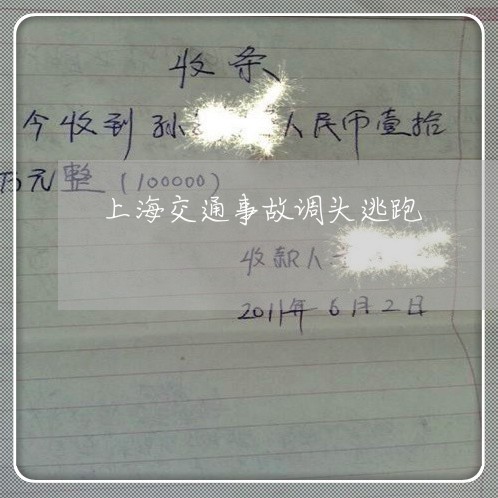 收条
今收到孙 人民币壹拾
万元整(100000)
上海交通事故调头逃跑
收款人
2011年6月2日